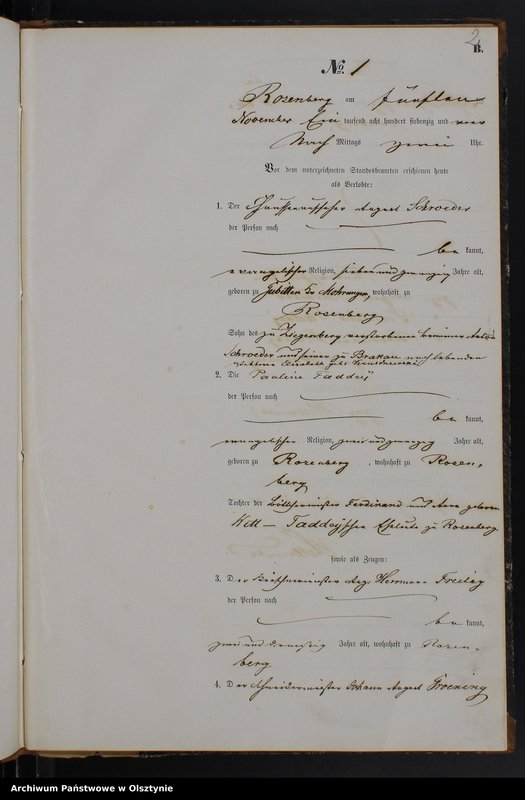 2
B.
No. 1
Rosenberg am fünften
November Ein tausend acht hundert siebenzig und vier
Nach Mittags zwei Uhr.
Vor dem unterzeichneten Standesbeamten erschienen heute
als Verlobte:
1. Der Chausseeaufseher August Schroeder
der Person nach
be kannt,
evangelischer Religion, sieben und zwanzig Jahre alt,
geboren zu Mohrungen, wohnhaft zu
Rosenberg
Sohn des zu Ziegenberg verstorbenen
Schroeder und seiner zu noch lebenden
Elisabeth geb.
2. Die Pauline Taddey
der Person nach
be kannt,
evangelischen Religion, zwei und zwanzig Jahre alt,
geboren zu Rosenberg, wohnhaft zu Rosen-
berg
Tochter der Böttchermeister Ferdinand und Anna geboren
Witt - Taddeyschen Eheleute zu Rosenberg
sowie als Zeugen:
3. Der Böttchermeister Aug. Herrmann Freitag
der Person nach
be kannt,
zwei und dreissig Jahre alt, wohnhaft zu Rosen-
berg
4. Der Schneidermeister Johann August Froening
Archiwum Państwowe w Olsztynie